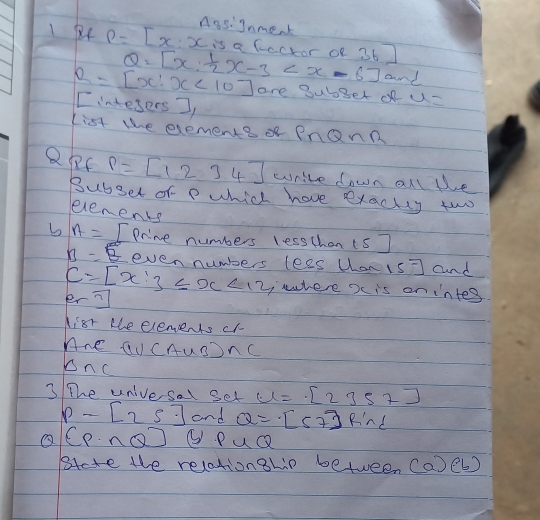 Assignment
1 If P = [x : x is a factor of 36]
Q = [x : ½x - 3 < x - 6] and
R = [x : x < 10] are subset of U =
[integers],
List the elements of P∩Q∩R
2 If P = [1 2 3 4] write down all the
subset of P which have exactly two
elements
b A = [Prime numbers less than 15]
B = even numbers less than 15] and
C = [x : 3 ≤ x < 12, where x is an integ
er]
list the elements of
(AUB)∩C
B∩C
3 The universal set U = [2 3 5 7]
P = [2 5] and Q = [5 7] find
a [P ∩ Q] b P U Q
state the relationship between (a) (b)